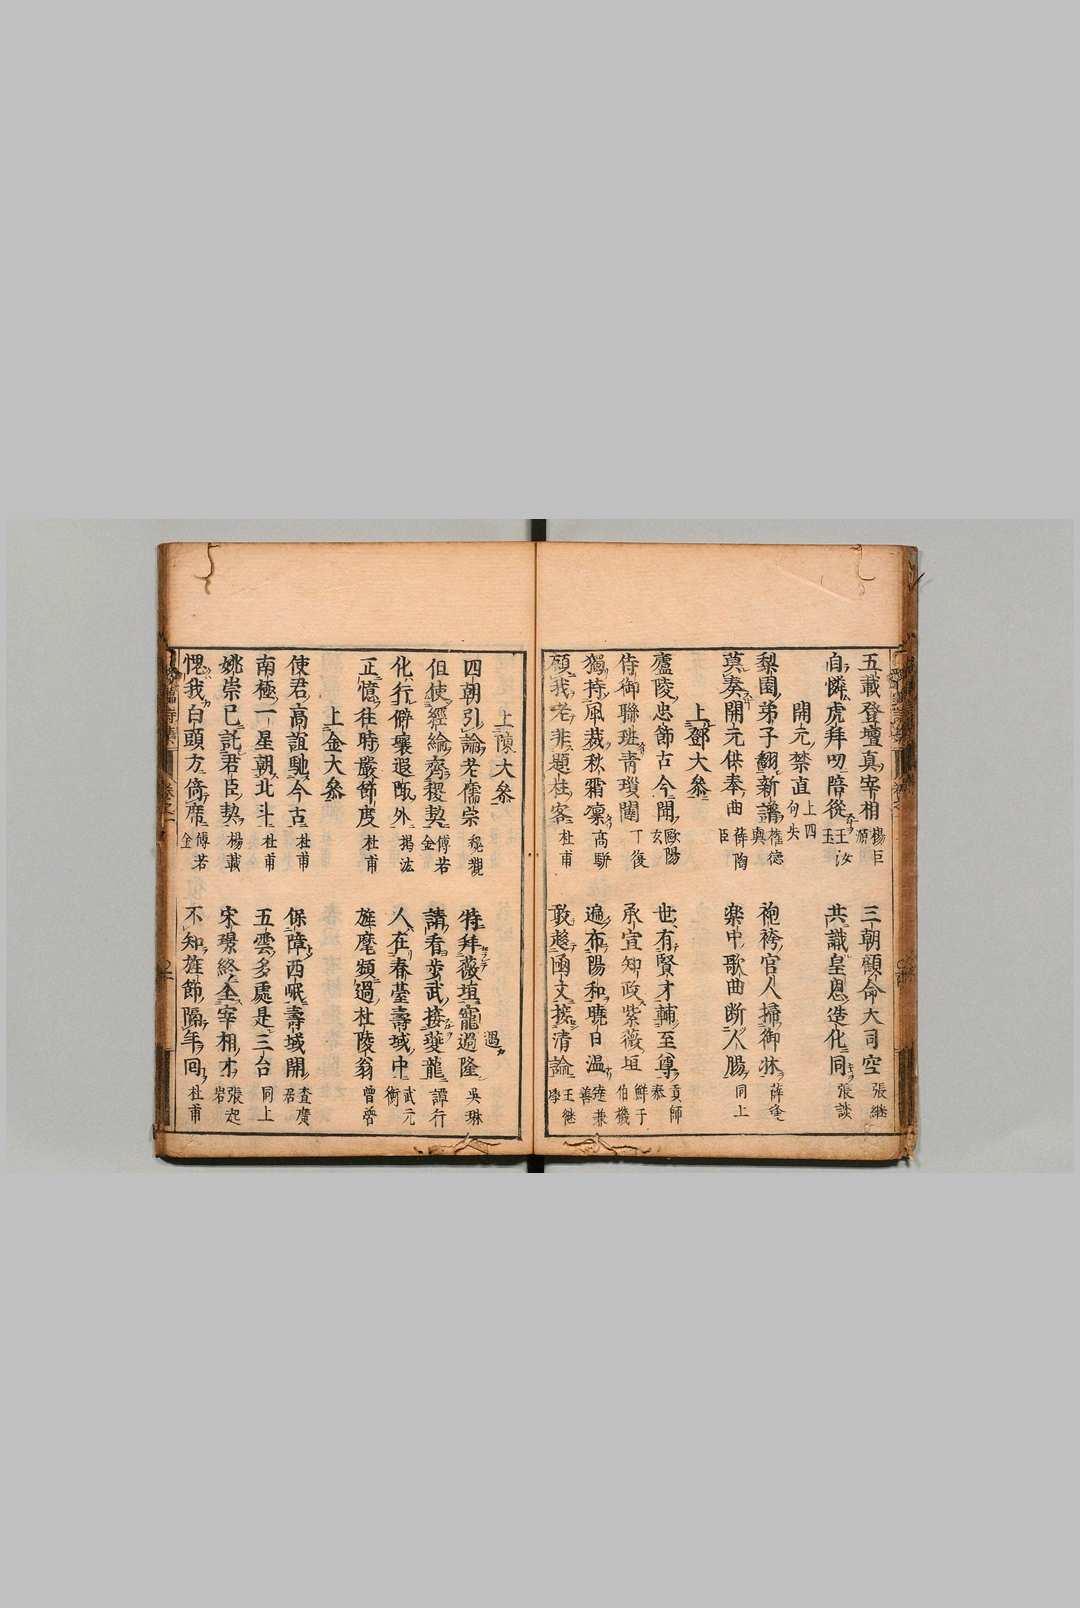 五載登壇真宰相 楊巨源 三朝顧命大司空 張繼
自憐虎拜叨陪從 王汝玉 共識皇恩造化同 張談
開元禁直 上四句失
梨園弟子翻新譜 權德輿 袍袴宮人掃御牀 薛逢
莫奏開元供奉曲 薛陶臣 樂中歌曲断人腸 同上
上鄧大叅
廬陵忠節古今聞 歐陽玄 世有賢才輔至尊 貢師泰
侍御聯班青瑣闥 丁復 承宣知政紫薇垣 鮮于伯機
獨持風裁秋霜凜 高駢 遍布陽和曉日温 達兼善
顧我老非題柱客 杜甫 敢趍函丈接清論 王継李
上陳大叅
四朝引論老儒宗 魏觀 特拜薇垣寵過隆 吳琳
但使經綸齊稷契 傅若金 請看步武接夔龍 譚行
化行僻壤遐陬外 揭汯 人在春臺壽域中 武元衡
正憶往時嚴節度 杜甫 旌麾頻過杜陵翁 曾棨
上金大叅
使君高誼馳今古 杜甫 保障西岷壽域開 査廣君
南極一星朝北斗 杜甫 五雲多處是三台 同上
姚崇已託君臣契 楊載 宋璟終全宰相才 張起岩
愧我白頭方倚席 傅若金 不知旌節隔年回 杜甫